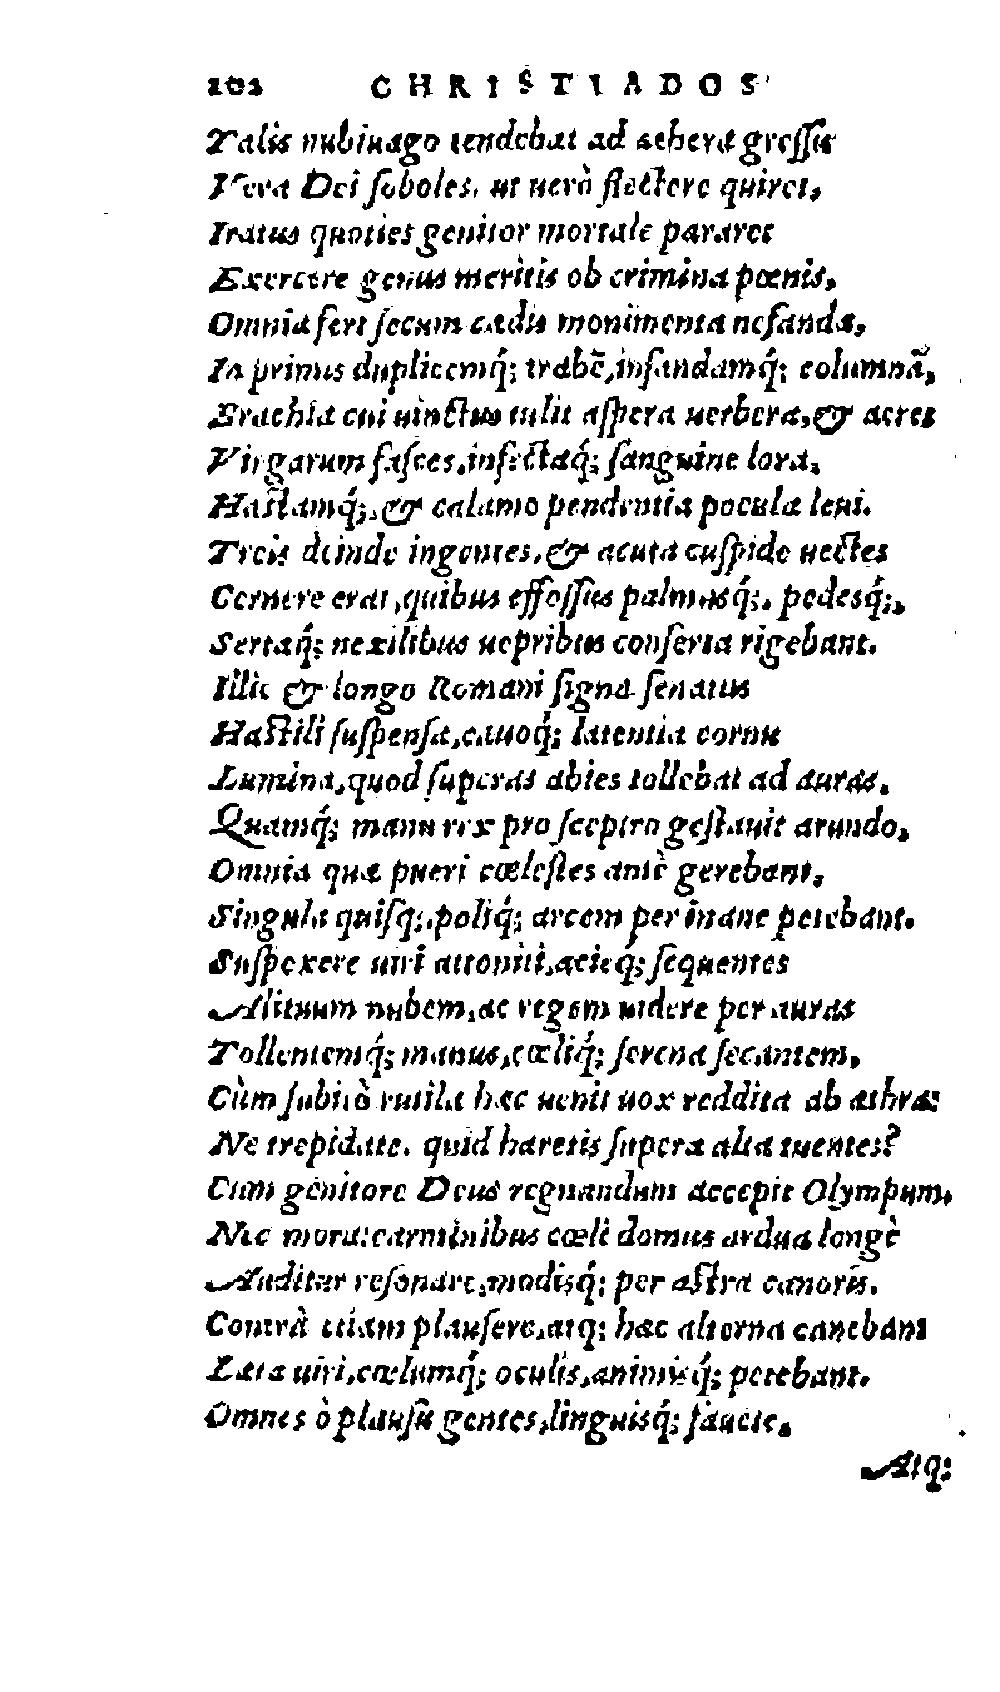 202 CHRISTIADOS
Talis nubiuago tendebat ad æthera gressu
Vera Dei soboles, ut uerò flectere quiret,
Iratus quoties genitor mortale pararet
Exercere genus meritis ob crimina pœnis,
Omnia fert secum cædis monimenta nefandæ,
In primis duplicemq́; trabẽ, infandamq́; columnã,
Brachia cui uinctus tulit aspera uerbera, & acres
Virgarum fasces, infectaq́; sanguine lora,
Hastamq́;, & calamo pendentia pocula leui.
Treis deinde ingentes, & acuta cuspide uectes
Cernere erat, quibus effossus palmasq́;, pedesq́;,
Sertaq́; nexilibus uepribus conserta rigebant.
Illic & longo Romani signa senatus
Hastili suspensa, cauoq́; latentia cornu
Lumina, quod superas abies tollebat ad auras,
Quamq́; manu rex pro sceptro gestauit arundo,
Omnia quæ pueri cœlestes antè gerebant,
Singula quisq;, poliq́; arcem per inane petebant.
Suspexere uiri attoniti, acieq́; sequentes
Alituum nubem, ac regem uidere per auras
Tollentemq́; manus, cœliq́; serena secantem,
Cùm subitò rutila hæc uenit uox reddita ab æthra:
Ne trepidate. quid hæretis supera alta tuentes?
Cum genitore Deus regnandum accepit Olympum,
Nec mora: carminibus cœli domus ardua longè
Auditur resonare, modisq́; per astra canoris.
Contrà etiam plausere, atq; hæc alterna canebant
Læta uiri, cœlumq́; oculis, animisq́; petebant.
Omnes ò plausũ gentes, linguisq́; fauete,
Atq;